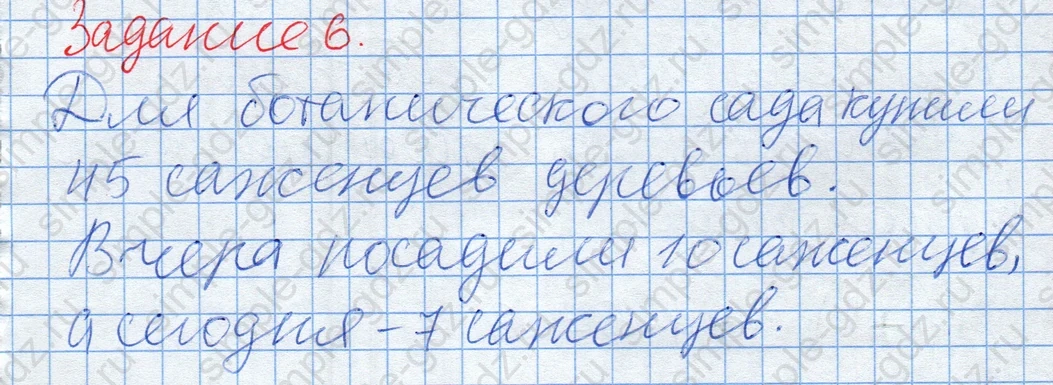 Задание 6.
Для ботанического сада купили
45 саженцев деревьев.
Вчера посадили 10 саженцев,
а сегодня – 7 саженцев.